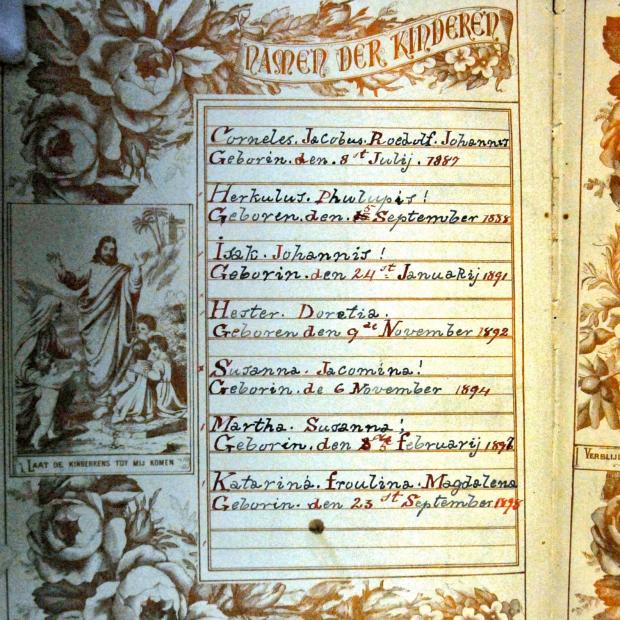 NAMEN DER KINDEREN
Corneles. Jacobus. Roedolf. Johannis
Geborin. den. 8st Julij. 1887
Herkulus. Phulupis!
Geboren. den. 5 September 1888
Isak. Johannis!
Geborin. den 24st Januarij 1891
Hester. Doretia.
Geboren den 9de November 1892
Susanna. Jacomina!
Geborin. de 6 November 1894
Martha. Susanna!
Geborin. den Februarij
Katarina. froulina. Magdalena
Geborin. den 23st September 1898
LAAT DE KINDERKENS TOT MIJ KOMEN
VERBLIJ